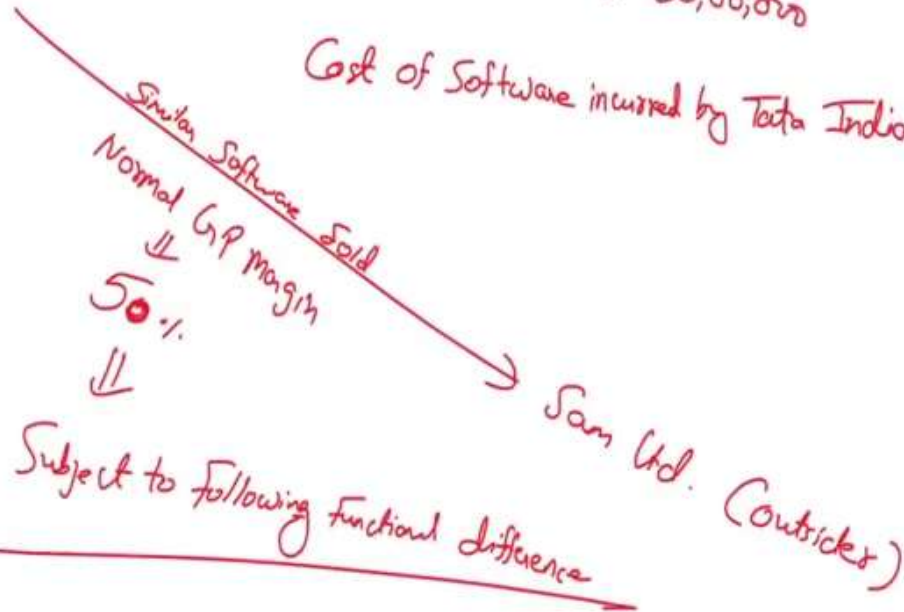 00,000
Cost of Software incurred by Tata India
Similar Software Sold
Normal GP Margin
⇓
50%
⇓
Sam Ltd. (outsider)
Subject to following functional difference